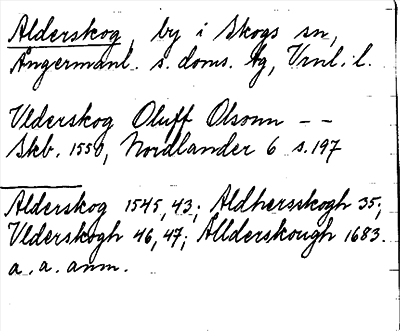 Alderskog, by i Skogs sn,
Ångermanl. s. doms. tg, Vrnl. l.
Ulderskog Oluff Olsonn – –
Skb. 1550, Nordlander 6 s. 197
Alderskog 1545, 43; Aldhersskogh 35;
Ulderskogh 46, 47; Allderskough 1683.
a. a. anm.